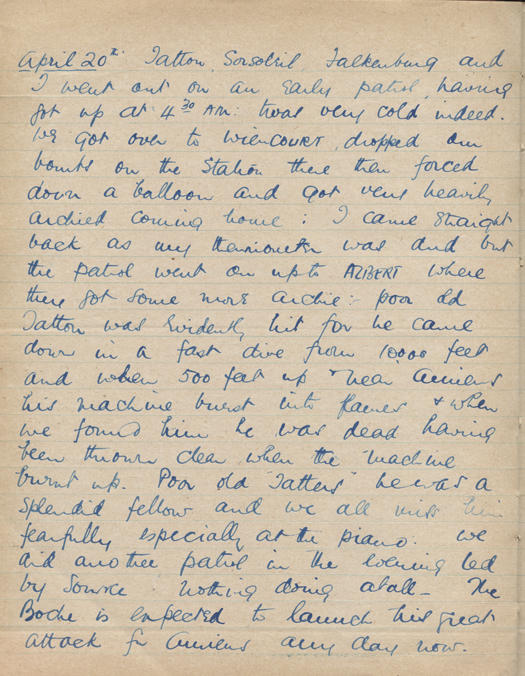 April 20th. Tatton, Sorsoleil Falkenburg and
I went out on an Early patrol, having
got up at 4 30 AM: twas very cold indeed.
We got over to WIENCOURT, dropped our
bombs on the Station there then forced
down a balloon and got very heavily
archied coming home: I came straight
back as my thermometer was dud but
the patrol went on up to ALBERT where
they got some more archie:- poor old
Tatton was Evidently hit for he came
down in a fast dive from 10,000 feet
and when 500 feet up near Amiens
his machine burst into flames & when
we found him he was dead having
been thrown clear when the machine
burnt up. Poor old "Tatters" he was a
splendid fellow and we all miss him
fearfully especially at the piano. We
did another patrol in the evening led
by Soriske. Nothing doing atall - The
Boche is expected to launch his great
attack for Amiens any day now.